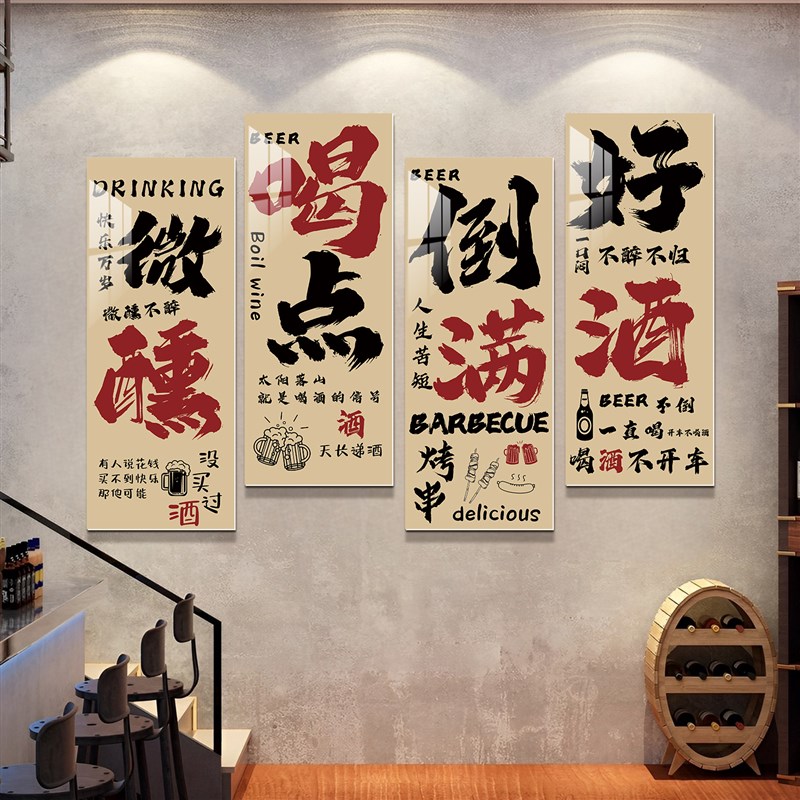 DRINKING
快乐万岁
微
微醺不醉
醺
有人说花钱
买不到快乐
那他可能
没买过
酒
BEER
喝
Boil wine
点
太阳落山
就是喝酒的信号
酒
天长递酒
BEER
倒
人生苦短
满
BARBECUE
烤串
delicious
好
一口闷
不醉不归
酒
BEER 不倒
一直喝 开车不喝酒
喝酒不开车